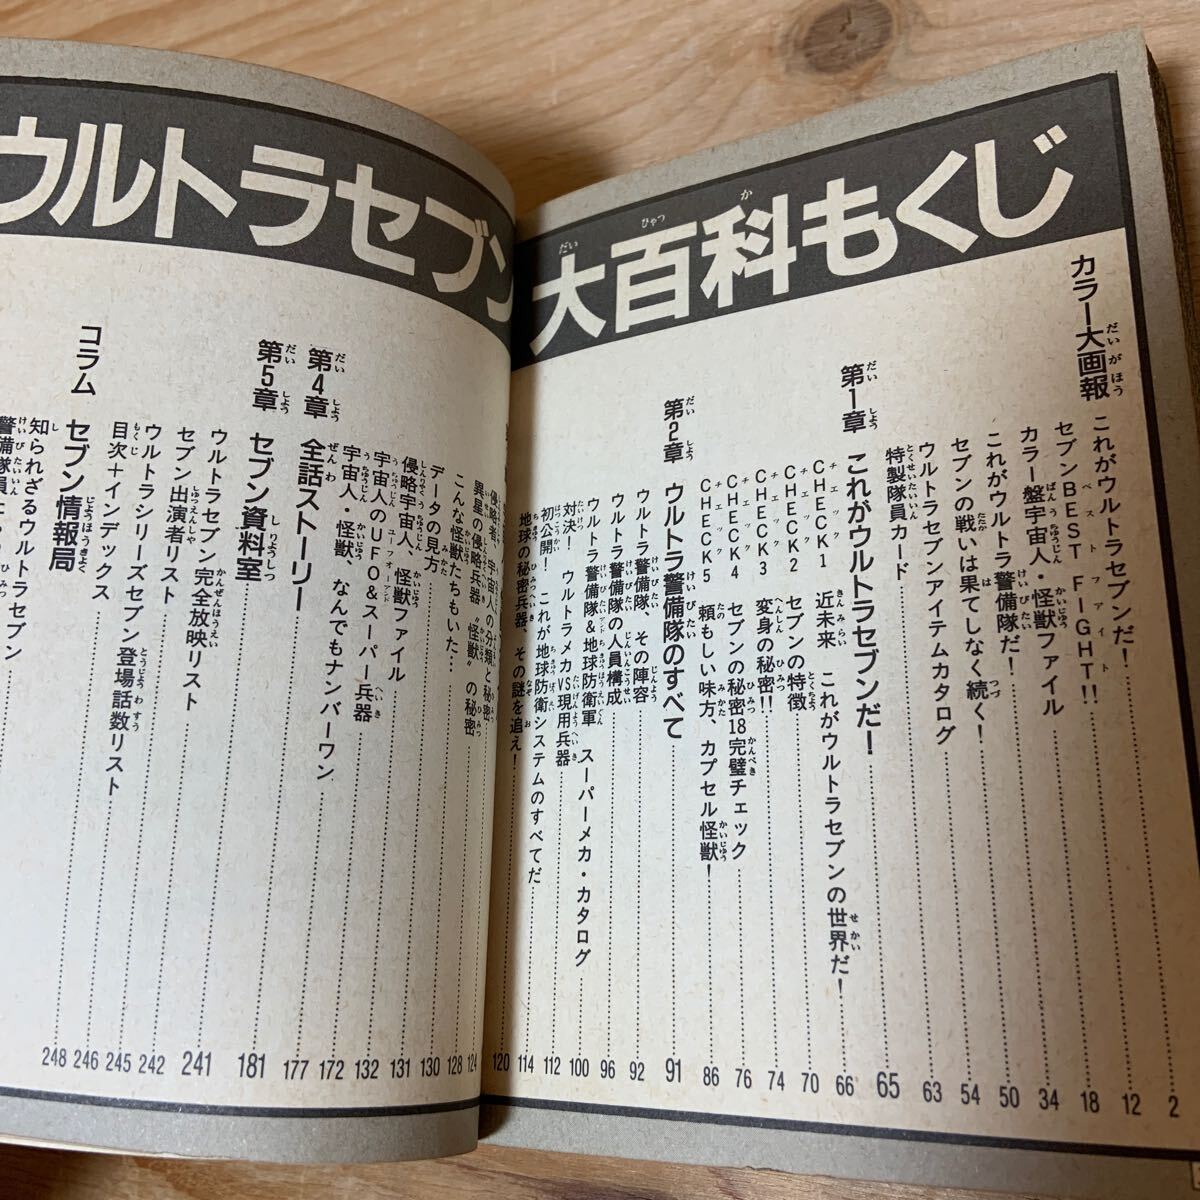 ウルトラセブン大百科もくじ
カラー大画報
これがウルトラセブンだ!……2
セブンBEST FIGHT!!……12
カラー盤宇宙人・怪獣ファイル……18
これがウルトラ警備隊だ!……34
セブンの戦いは果てしなく続く!……50
ウルトラセブンアイテムカタログ……54
特製隊員カード……63
第1章 これがウルトラセブンだ!……65
CHECK1 近未来 これがウルトラセブンの世界だ!……66
CHECK2 セブンの特徴……70
CHECK3 変身の秘密!!……74
CHECK4 セブンの秘密18完璧チェック……76
CHECK5 頼もしい味方、カプセル怪獣!……86
第2章 ウルトラ警備隊のすべて……91
ウルトラ警備隊、その陣容……92
ウルトラ警備隊の人員構成……96
ウルトラ警備隊&地球防衛軍 スーパーメカ・カタログ……100
対決! ウルトラメカVS現用兵器……112
初公開! これが地球防衛システムのすべてだ……114
地球の秘密兵器、その謎を追え!……120
侵略者、宇宙人の分類と秘密……124
異星の侵略兵器“怪獣”の秘密……128
こんな怪獣たちもいた………130
データの見方……131
侵略宇宙人、怪獣ファイル……132
宇宙人のUFO&スーパー兵器……172
宇宙人・怪獣、なんでもナンバーワン……177
第4章 全話ストーリー……181
第5章 セブン資料室……241
ウルトラセブン完全放映リスト……242
セブン出演者リスト……245
ウルトラシリーズセブン登場話数リスト……246
目次+インデックス……248
コラム セブン情報局
知られざるウルトラセブン
警備隊員